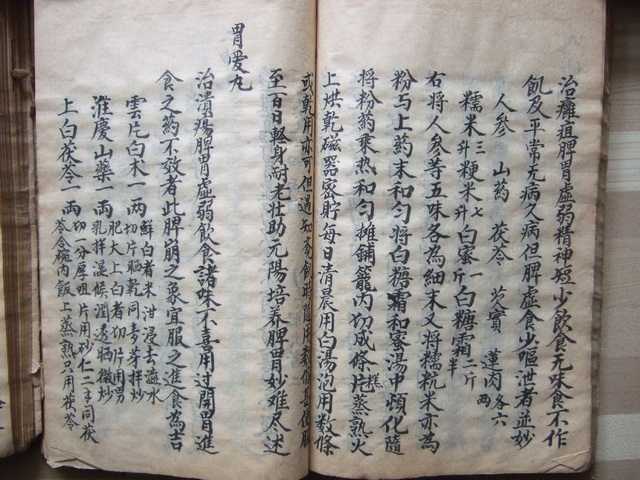 治癰疽脾胃虛弱精神短少飲食无味食不作
飢及平常无病久病但脾虛食少嘔泄者並妙
人參 山药 茯苓 芡實 蓮肉各六两
糯米三升粳米七升白蜜一斤白糖霜二斤半
右将人參等五味各為細末又将糯秔米亦為
粉与上药末和匀将白糖霜和蜜湯中煩化隨
将粉药乘热和匀摊鋪籠内切成條片糕蒸熟火
上烘乾磁器密貯每日清晨用白湯泡用数條
或乾用亦可但遇知克飢時隨用数條甚使服
至一百日輕身耐老壮助元陽培养脾胃妙难尽述
胃愛丸
治溃瘍脾胃虛弱飲食諸味不喜用过開胃進
食之药不效者此脾崩之象宜服之進食為吉
雲片白术一两鮮白者米泔浸去澁水切片晒乾同麦芽拌炒
淮慶山藥一两肥大上白者切片用男乳拌湿候潤透晒微炒
上白茯苓一两切一分厚咀片用砂仁二手同茯苓合碗内飯上蒸熟只用茯苓